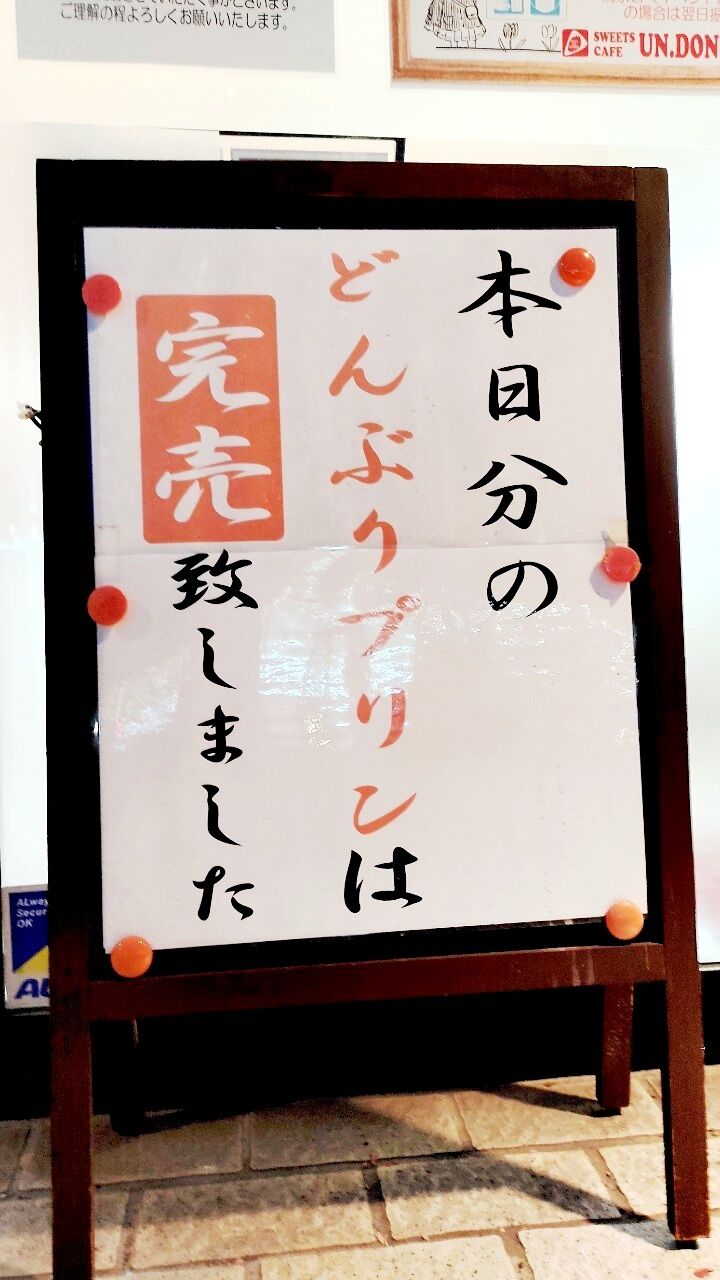 ご理解の程よろしくお願いいたします。
の場合は翌日
SWEETS
CAFE
UN.DON
本日分の
どんぶりプリンは
完売致しました
ALway
Secur
OK